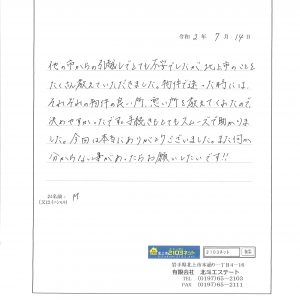 令和 2年 7月 14日
他の市からの引越しでとても不安でしたが、北上市のことを
たくさん教えていただきました。物件で迷った時には、
それぞれの物件の良い所、悪い所を教えてくれたので
決めやすかったです。手続きもとてもスムーズで助かりま
した。今回は本当にありがとうございました。また何か
分からない事があったらお願いしたいです!!
お名前:
(又はイニシャル) M
2103ネット
2103ネット 検索
岩手県北上市本通り2丁目4-16
有限会社 北斗エステート
TEL (0197)65-2103
FAX (0197)65-2111